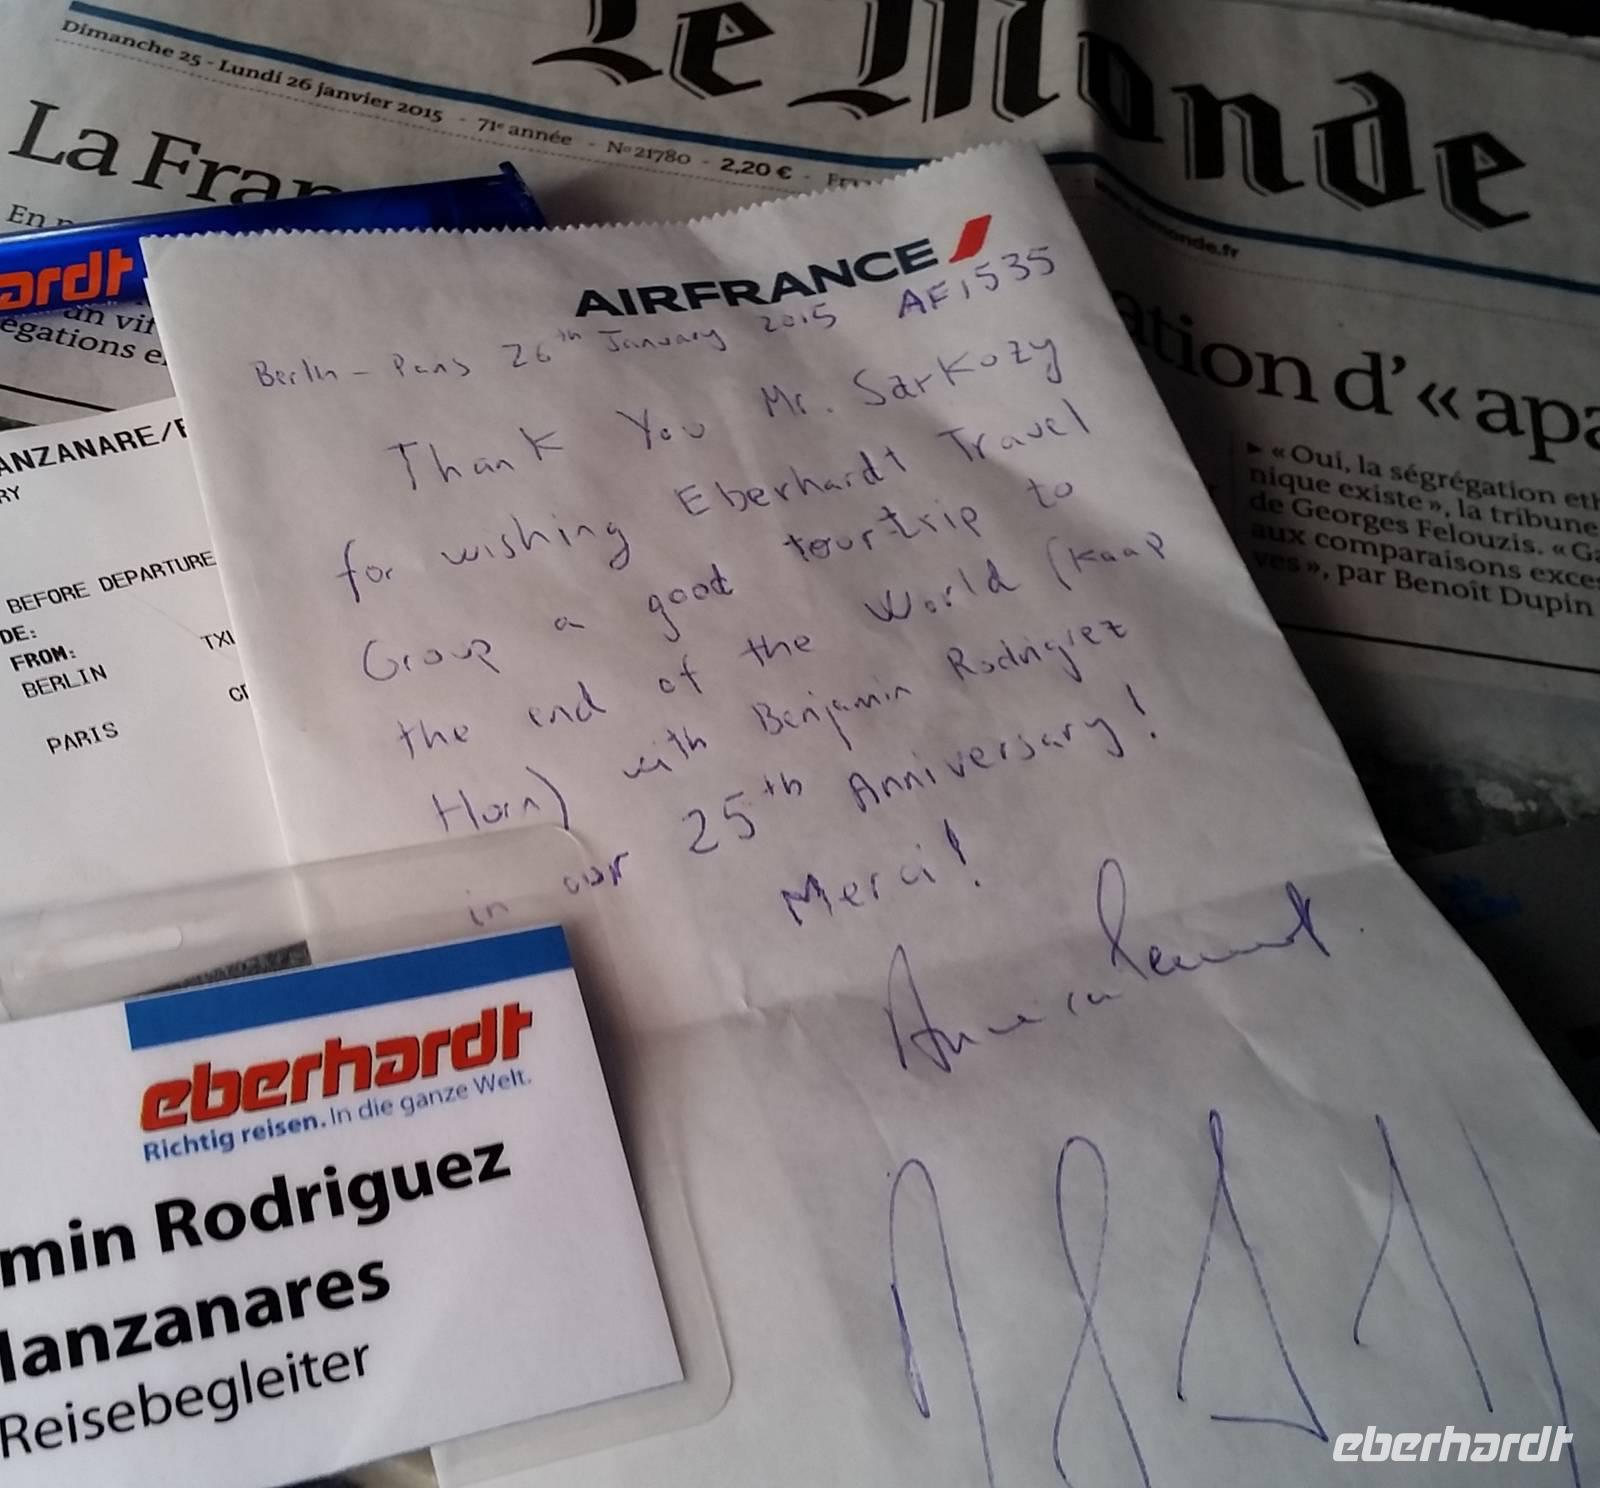 Le Monde
Dimanche 25 - Lundi 26 janvier 2015 - 71e année - No 21780 - 2,20 € -
La Fran
En
ardt
un vif
égations e
ation d’« apa
► « Oui, la ségrégation eth
nique existe », la tribune
de Georges Felouzis. « Ga
aux comparaisons exces
ves », par Benoît Dupin
ANZANARE/
RY
BEFORE DEPARTURE
DE:
FROM:
BERLIN TXL
PARIS
AIRFRANCE
Berlin - Paris 26th January 2015 AF1535
Thank You Mr. Sarkozy
for wishing Eberhardt Travel
Group a good tourtrip to
the end of the World (Kaap
Horn) with Benjamin Rodriguez
in our 25th Anniversary!
Merci!
eberhardt
Richtig reisen. In die ganze Welt.
min Rodriguez
lanzanares
Reisebegleiter
eberhardt